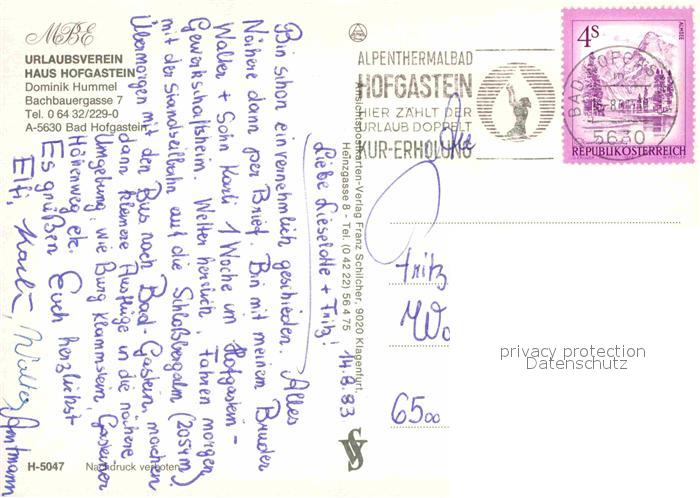 MBE
URLAUBSVEREIN
HAUS HOFGASTEIN
Dominik Hummel
Bachbauergasse 7
Tel. 0 64 32/229-0
A-5630 Bad Hofgastein
14.8.83
Liebe Lieselotte + Fritz!
Bin schon einvernehmlich geschieden. Alles
Nähere dann per Brief. Bin mit meinem Bruder
Walter, + Sohn Karli 1 Woche im Hofgastein -
Gewerkschaftsheim. Wetter herrlich, fahren morgen
mit der Standseilbahn auf die Schloßbergalm (2054m)
Übermorgen mit den Bus nach Bad-Gastein, machen
dann kleinere Ausflüge in die nähere
Umgebung: wie Burg Klammstein, Gasteiner
Höhenweg etc.
Es grüßen Euch herzlichst
Elfi, Karli, Walter Amtmann
H-5047 Nachdruck verboten
Ansichtspostkarten-Verlag Franz Schilcher, 9020 Klagenfurt,
Heinzgasse 8 - Tel. (0 42 22) 56 4 75
ALPENTHERMALBAD
HOFGASTEIN
HIER ZÄHLT DER
URLAUB DOPPELT
KUR-ERHOLUNG
4S
ALMSEE
BAD HOFGASTEIN
5630
REPUBLIK ÖSTERREICH
Fritz
Wo
6500
privacy protection
Datenschutz